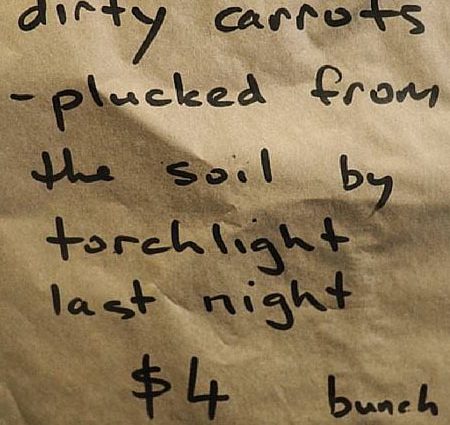 dirty carrots
- plucked from
the soil by
torchlight
last night
$4 bunch